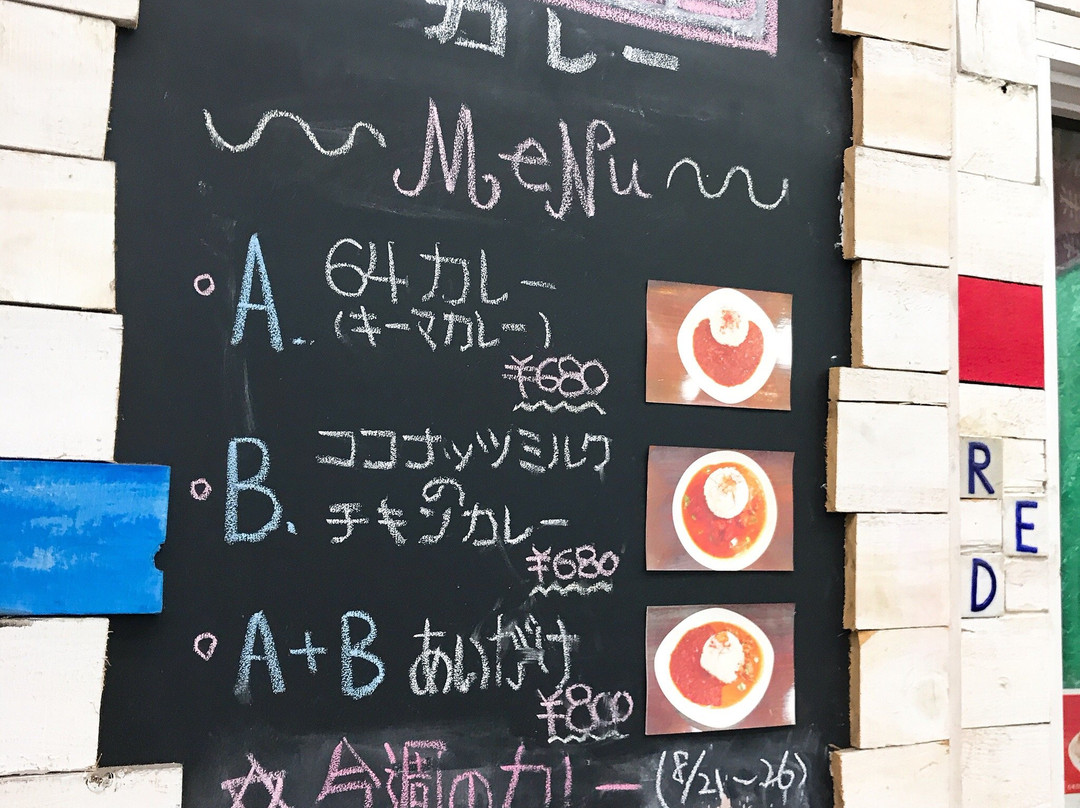 カレー
MeNu
A. 64カレー
(キーマカレー)
¥680
B. ココナッツミルク
の
チキンカレー
¥680
A+B あいがけ
¥800
☆今週のカレー (8/21〜26)
R
E
D